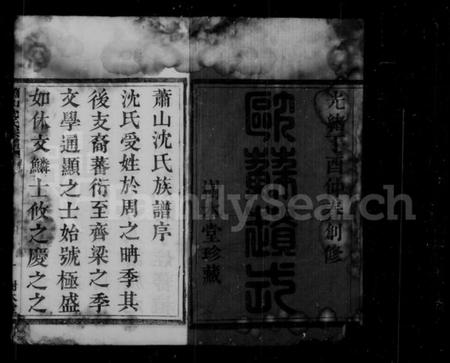 光緒丁酉仲創修
歐蘇遺式
堂珍藏
蕭山沈氏族譜序
沈氏受姓於周之聃季其
後支裔蕃衍至齊梁之季
文學通顯之士始號極盛
如休文麟士攸之慶之之
FamilySearch